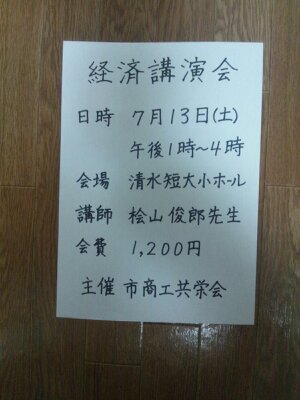 経済講演会
日時 7月13日(土)
午後1時~4時
会場 清水短大小ホール
講師 桧山俊郎先生
会費 1,200円
主催 市商工共栄会